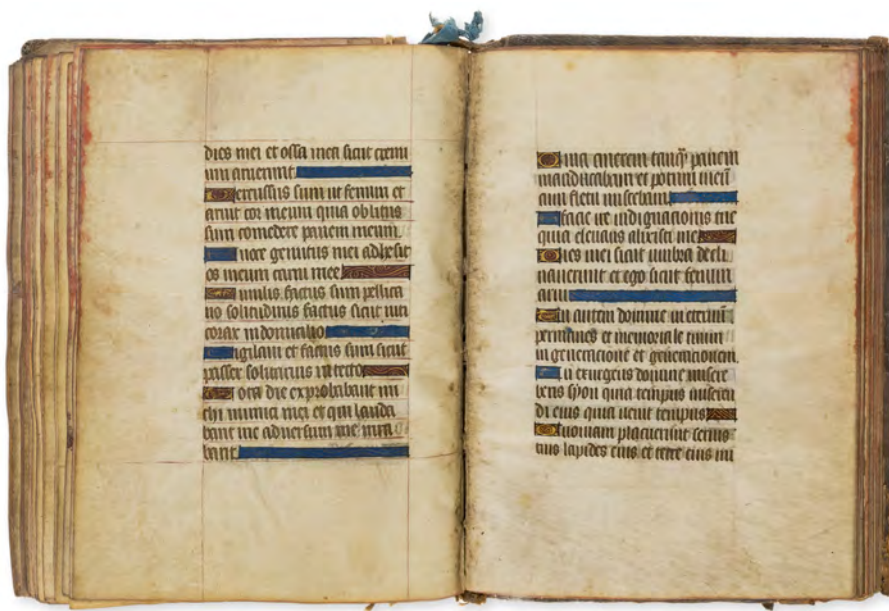 dies mei et ossa mea sicut cremi
um aruerunt
Percussus sum ut fenum et
aruit cor meum quia oblitus
sum comedere panem meum
A voce gemitus mei adhesit
os meum carni mee
Similis factus sum pellica
no solitudinis factus sicut niti
corax in domicilio
Vigilavi et factus sum sicut
passer solitarius in tecto
Tota die exprobabant mi
chi inimici mei et qui lauda
bant me adversum me iura
bant
Quia cinerem tanqz panem
manducabam et potum meū
cum fletu miscebam
A facie ire indignacionis tue
quia elevans alixisti me
Dies mei sicut umbra decli
naverunt et ego sicut fenum
arui
Tu autem domine in eternū
permanes et memoriale tuum
in generacione et generacionem
Tu exurgens domine misere
beris syon quia tempus miseren
di eius quia venit tempus
Quoniam placuerunt servis
tuis lapides eius et terre eius mi